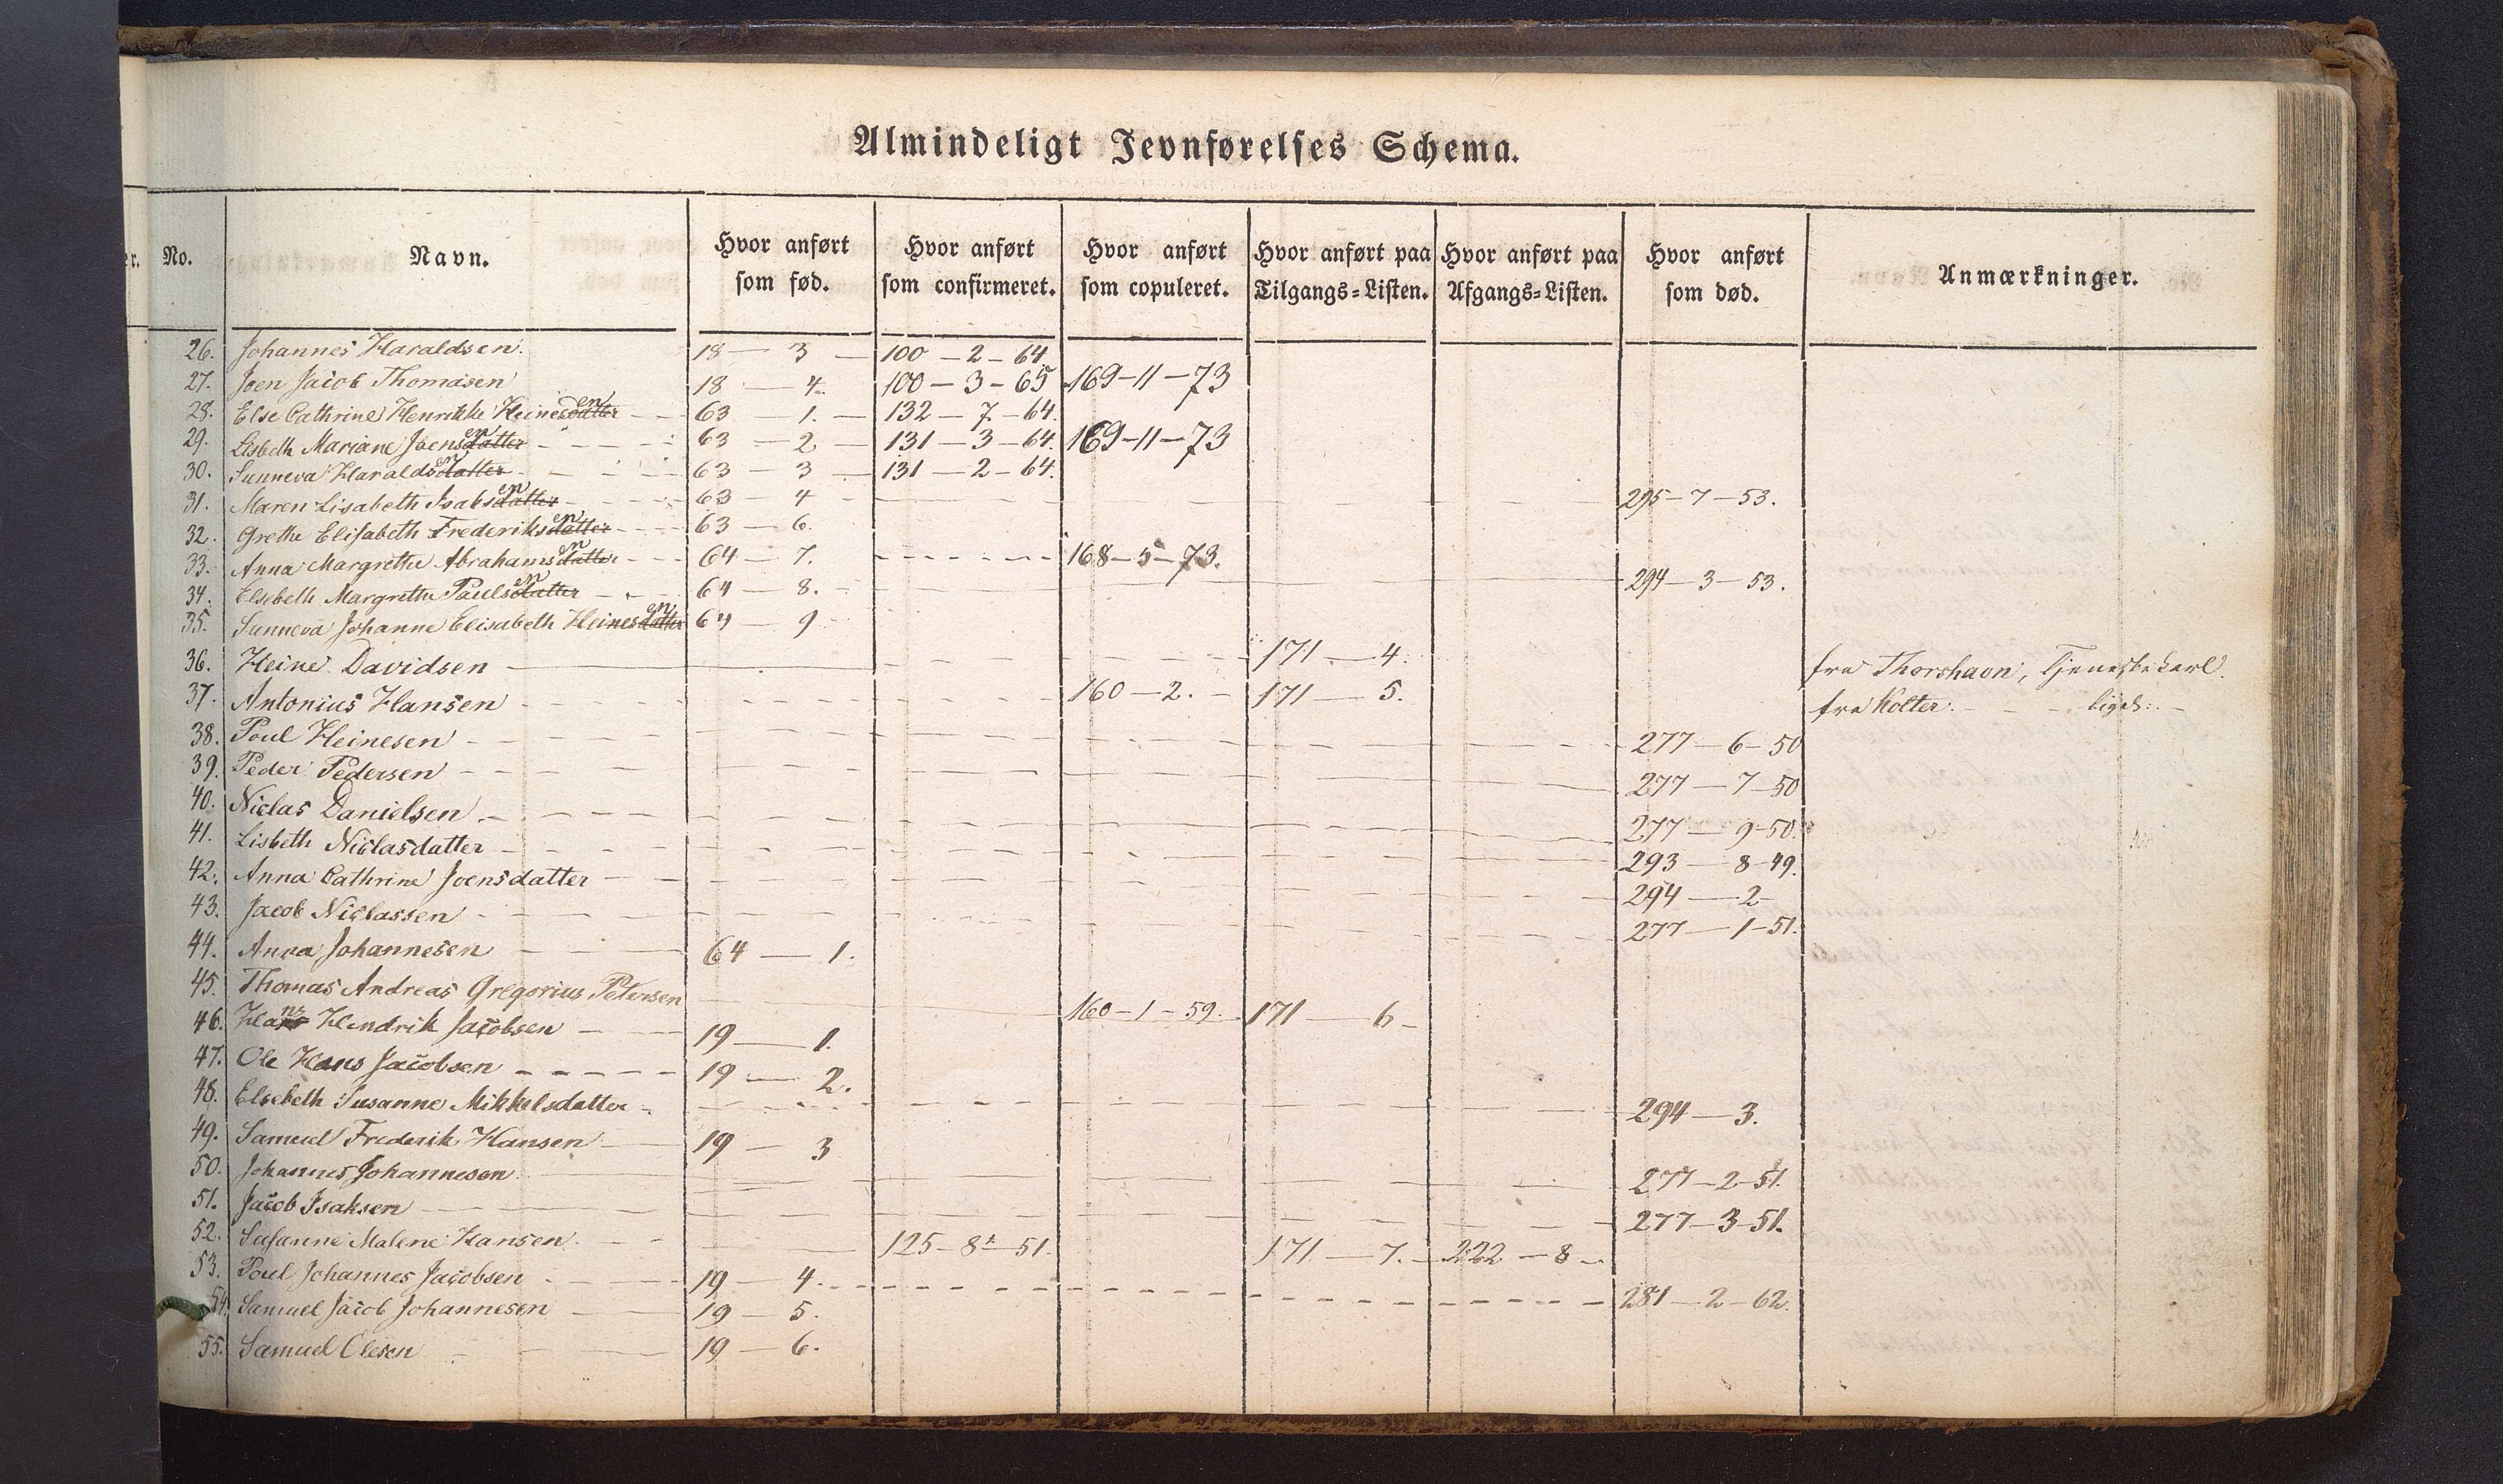 Almindeligt Jevnførelses Schema.
No. Navn. Hvor anført som fød. Hvor anført som confirmeret. Hvor anført som copuleret. Hvor anført paa Tilgangs=Listen. Hvor anført paa Afgangs=Listen. Hvor anført som død. Anmærkninger.
26. Johannes Haraldsen. 18 — 3 — 100 — 2 — 64
27. Joen Jacob Thomasen 18 — 4. 100 — 3 — 65 169-11-73
28. Else Cathrine Henrikke Heinesdatteren 63 — 1. — 132 — 7 — 64.
29. Elsbeth Mariane Joensdatteren 63 — 2 — 131 — 3 — 64. 169-11-73
30. Sunneva Haraldsdatteren 63 — 3 — 131 — 2 — 64.
31. Maren Lisabeth Isaksdatteren 63 — 4 295 — 7 — 53.
32. Grethe Elisabeth Frederiksdatteren 63 — 6.
33. Anna Margrethe Abrahamsdatteren 64 — 7. 168-5-73.
34. Elsebeth Margrethe Paulsdatteren 64 — 8. 294 — 3 — 53.
35. Sunneva Johanne Elisabeth Heinesdatteren 64 — 9
36. Heine Davidsen 171 — 4. fra Thorshavn, Tjenestekarl.
37. Antonius Hansen 160 — 2. — 171 — 5. fra Kolter. ligds:
38. Poul Heinesen 277 — 6 — 50
39. Peder Pedersen 277 — 7 — 50
40. Niclas Danielsen 277 — 9-50.
41. Lisbeth Niclasdatter 293 — 8-49.
42. Anna Cathrine Joensdatter 294 — 2
43. Jacob Niclassen 277 — 1-51.
44. Anna Johannesen 64 — 1.
45. Thomas Andreas Gregorius Petersen 160-1-59. 171 — 6
46. Hans Hendrik Jacobsen 19 — 1.
47. Ole Hans Jacobsen 19 — 2.
48. Elsebeth Susanne Mikkelsdatter 294 — 3.
49. Samuel Frederik Hansen 19 — 3
50. Johannes Johannesen 277-2-51.
51. Jacob Isaksen 277-3-51.
52. Susanne Malene Hansen. 125-8-51. 171 — 7. 222 — 8
53. Poul Johannes Jacobsen 19 — 4. 281 — 2 — 62.
54. Samuel Jacob Johannesen 19 — 5.
55. Samuel Olesen 19 — 6.